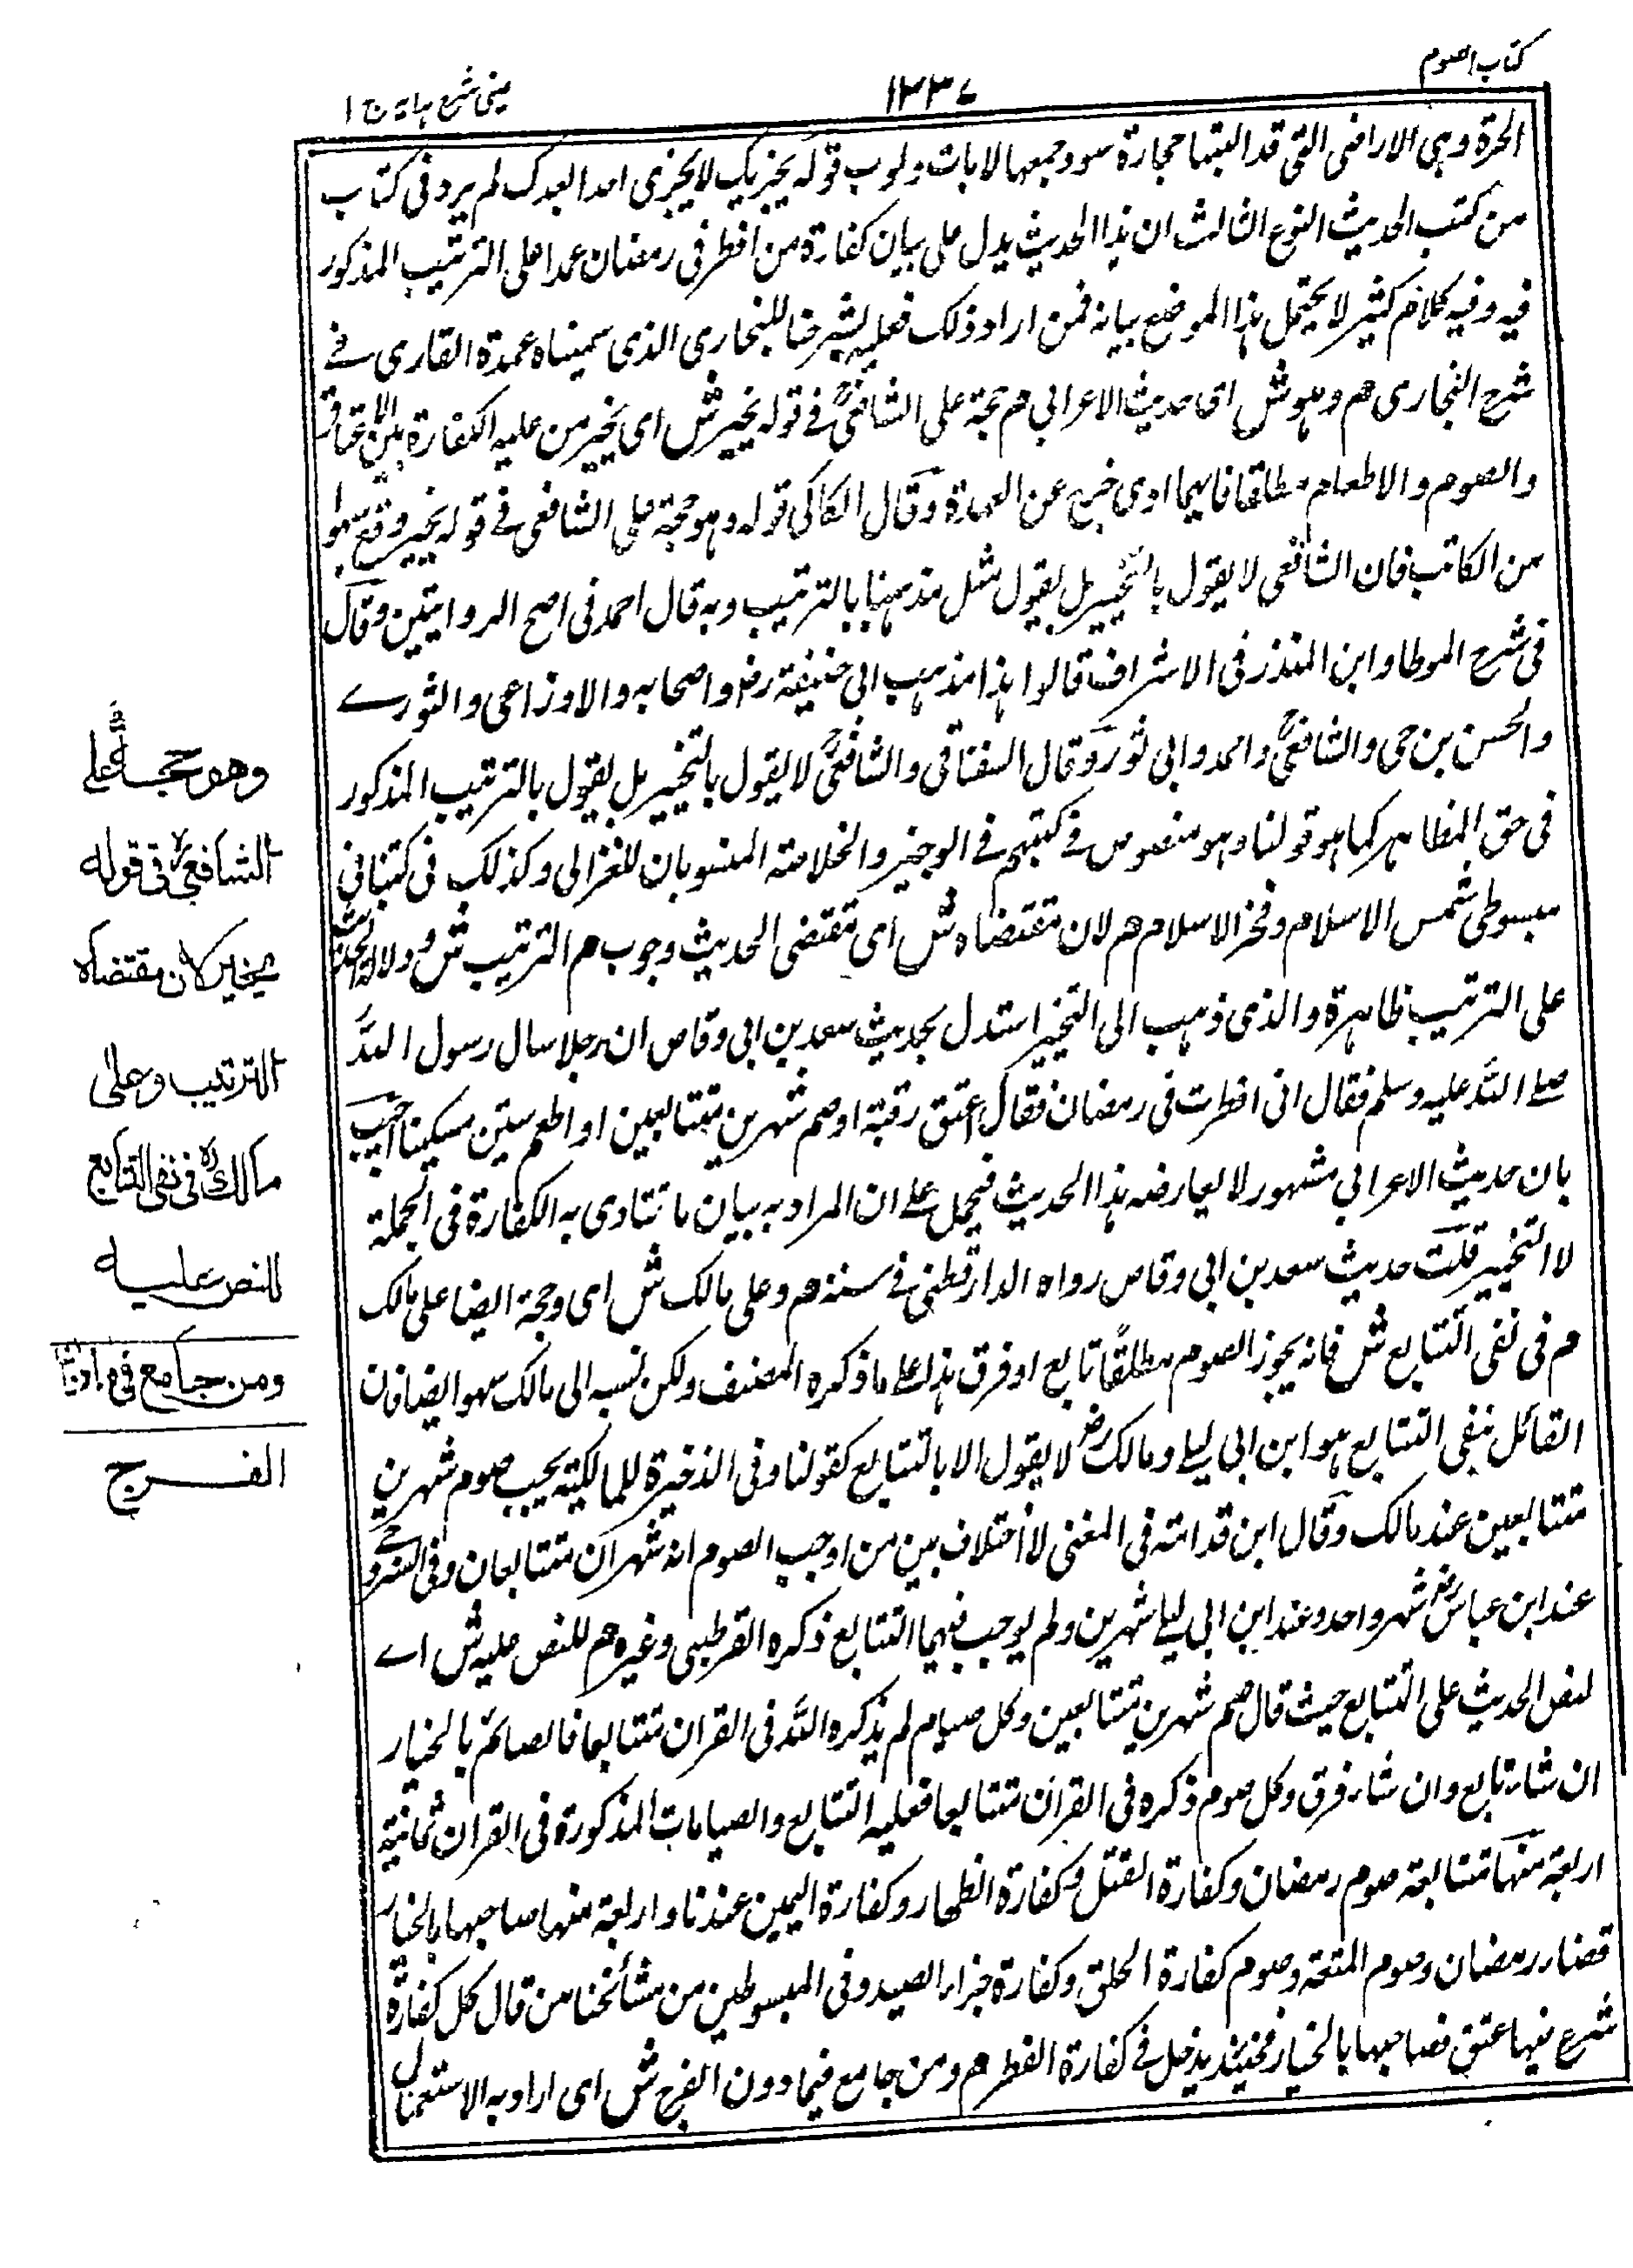 كتاب الصوم
١٣٣٧
عينى شرح هداية ج ١
الحرة وهى الاراضى التى قد البتها حجارة سود وجمعها لابات ولوب قوله يجزيك لا يجزى احدا بعدك لم يرد فى كتاب
من كتب الحديث النوع الثالث ان هذا الحديث يدل على بيان كفارة من افطر فى رمضان عمدا على الترتيب المذكور
فيه وفيه كلام كثير لا يحتمل هذا الموضع بيانه فمن اراد ذلك فعليه بشرحنا للبخارى الذى سميناه عمدة القارى فے
شرح البخارى م وهو ش اى حديث الاعرابي م حجة على الشافعىؒ فے قوله يخير ش اى يخير من عليه الكفارة بين الاعتاق
والصوم والاطعام مطلقا فايهما ادى خرج عن العهدة وقال الكاكى قوله وهو حجة على الشافعى فے قوله يخير وقع سهوا
من الكاتب فان الشافعى لا يقول بالتخيير بل يقول مثل مذهبنا بالترتيب وبه قال احمد فى اصح الروايتين وقال
فى شرح الموطا وابن المنذر فى الاشراف قالوا هذا مذهب ابى حنيفة رض واصحابه والاوزاعى والثورے
والحسن بن حى والشافعىؒ واحمد وابى ثور وقال السغناقى والشافعىؒ لا يقول بالتخيير بل يقول بالترتيب المذكور
فى حق المظاهر كما هو قولنا وهو منصوص فے كتبهم فے الوجيز والخلاصة المنسوبان للغزالى وكذلك فى كتبنا فى
مبسوطى شمس الاسلام وفخر الاسلام م لان مقتضاه ش اى مقتضى الحديث وجوب م الترتيب ش ودلالة الحديث
على الترتيب ظاهرة والذى ذهب الى التخيير استدل بحديث سعد بن ابى وقاص ان رجلا سال رسول الله
صلے الله عليه وسلم فقال انى افطرت فى رمضان فقال اعتق رقبة او صم شهرين متتابعين او اطعم ستين مسكينا اجيب
بان حديث الاعرابي مشهور لا يعارضه هذا الحديث فيحمل علے ان المراد به بيان ما تتادى به الكفارة فى الجملة
لا التخيير قلت حديث سعد بن ابى وقاص رواه الدارقطنى فے سننه م وعلى مالك ش اى وحجة ايضا على مالك
م فى نفى التتابع ش فانه يجوز الصوم مطلقًا تابع او فرق هذا علے ما ذكره المصنف ولكن نسبه الى مالك سهو ايضا فان
القائل بنفى التتابع هو ابن ابى ليلے ومالك رض لا يقول الا بالتتابع كقولنا وفى الذخيرة للمالكية يجب صوم شهرين
متتابعين عند مالك وقال ابن قدامة فى المغنى لا اختلاف بين من اوجب الصوم انه شهران متتابعان وفى السروجے
عند ابن عباس رض شهر واحد وعند ابن ابى ليلے شهرين ولم يوجب فيهما التتابع ذكره القرطبى وغيره م للنص عليه ش اے
لنص الحديث على التتابع حيث قال صم شهرين متتابعين وكل صيام لم يذكره الله فى القران متتابعا فالصائم بالخيار
ان شاء تابع وان شاء فرق وكل صوم ذكره فى القران متتابعا فعليه التتابع والصيامات المذكورة فى القران ثمانية
اربعة منها متتابعة صوم رمضان وكفارة القتل وكفارة الظهار وكفارة اليمين عندنا واربعة منها صاحبها بالخيار
قضاء رمضان وصوم المتعة وصوم كفارة الحلق وكفارة جزاء الصيد وفى المبسوطين من مشائخنا من قال كل كفارة
شرع فيها عتق فصاحبها بالخيار فحينئذ يدخل فے كفارة الفطر م ومن جامع فيما دون الفرج ش اى اراد به الاستعمال
وهو حجة على
الشافعىؒ فى قوله
يخير لان مقتضاه
الترتيب وعلى
مالك رح فى نفى التتابع
للنص عليه
ومن جامع فيما دون
الفرج